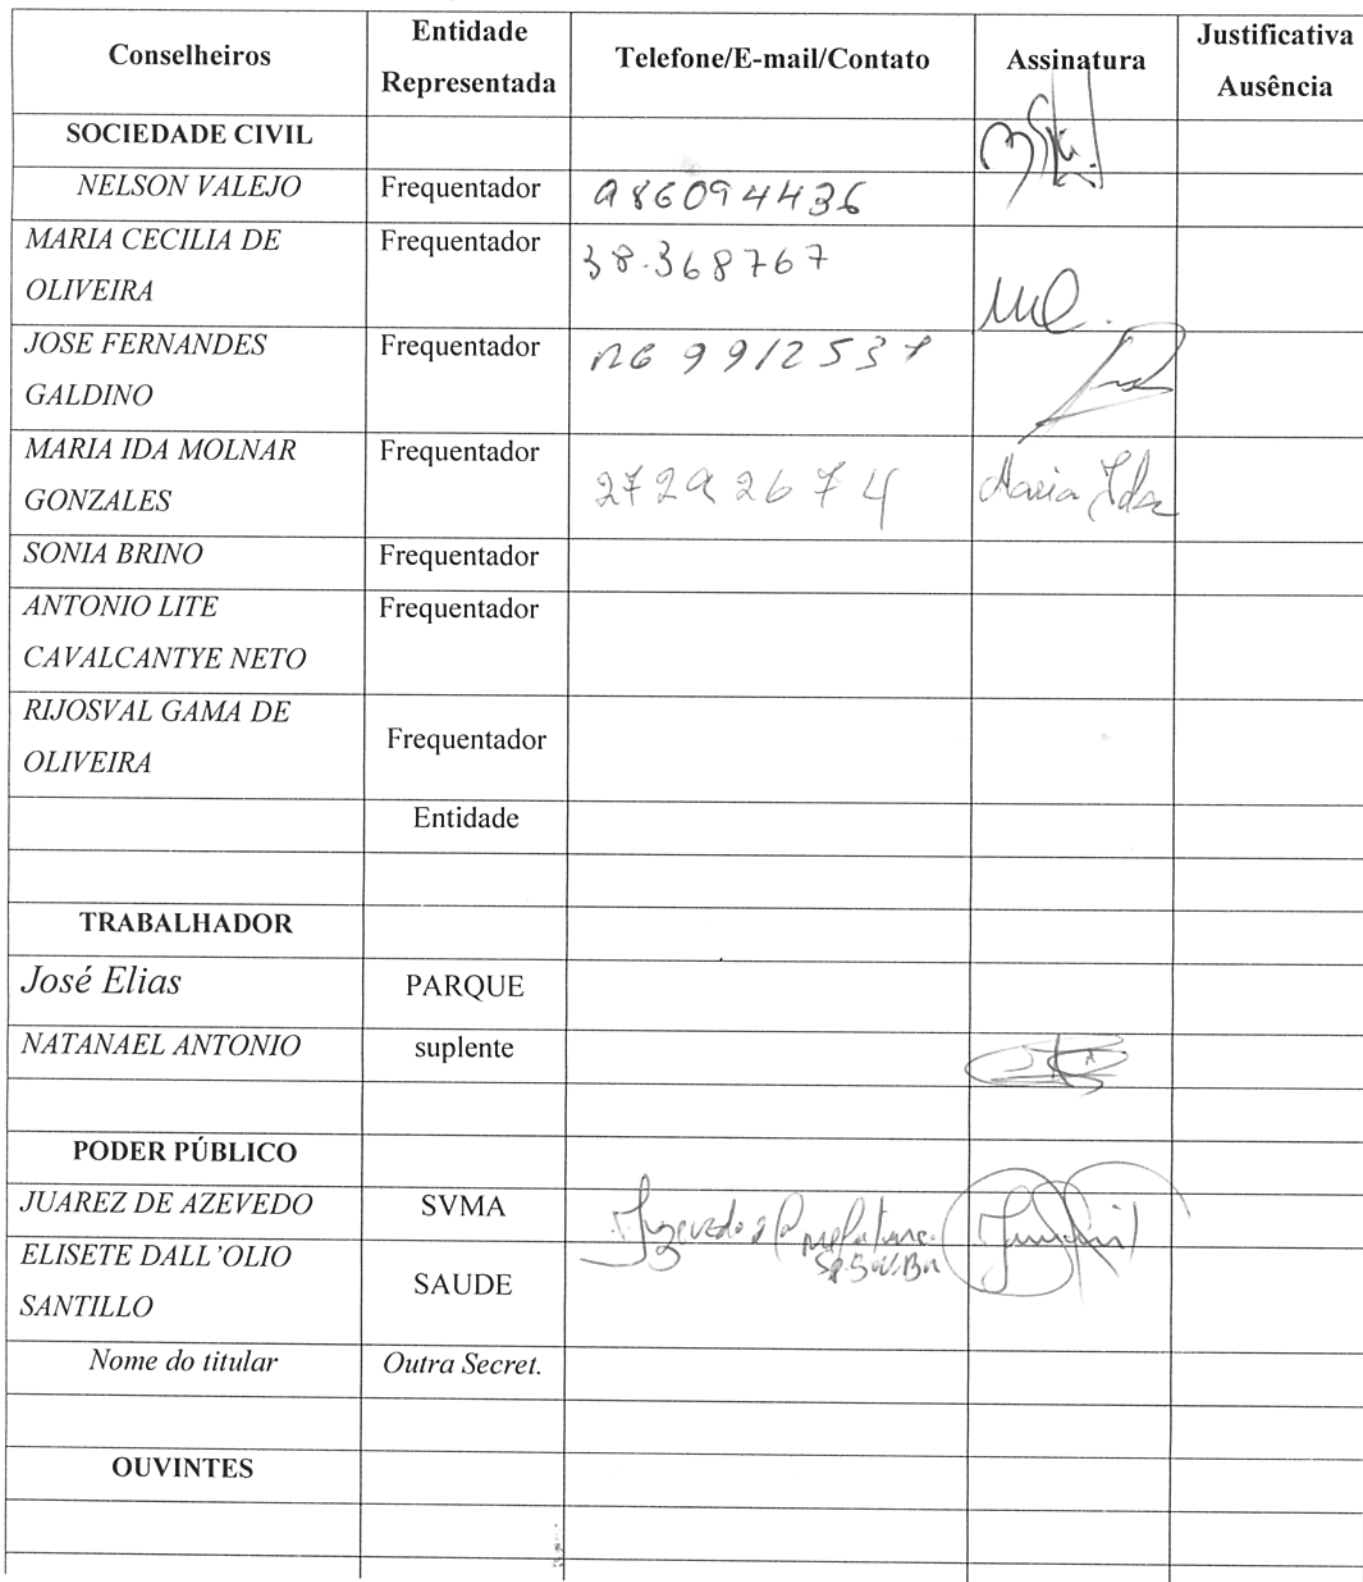 Conselheiros
Entidade
Representada
Telefone/E-mail/Contato
Assinatura
Justificativa
Ausência
SOCIEDADE CIVIL
NELSON VALEJO
Frequentador
986094436
MARIA CECILIA DE
OLIVEIRA
Frequentador
38.368767
JOSE FERNANDES
GALDINO
Frequentador
99125
MARIA IDA MOLNAR
GONZALES
Frequentador
27292674
Maria Ida
SONIA BRINO
Frequentador
ANTONIO LITE
CAVALCANTYE NETO
Frequentador
RIJOSVAL GAMA DE
OLIVEIRA
Frequentador
Entidade
TRABALHADOR
José Elias
PARQUE
NATANAEL ANTONIO
suplente
PODER PÚBLICO
JUAREZ DE AZEVEDO
SVMA
ELISETE DALL'OLIO
SANTILLO
SAUDE
Nome do titular
Outra Secret.
OUVINTES